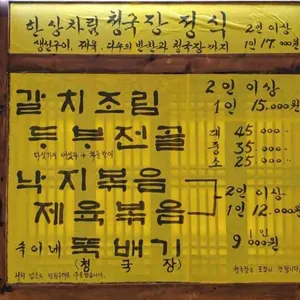 한상차림 청국장 정식 2인 이상
생선구이, 제육, 다수의 반찬과 청국장까지 1인 17.000원
갈치조림 2인 이상
1인 15.000원
두부전골 대 45.000
중 35.000
소 25.000
낙지볶음 2인 이상
제육볶음 1인 12.000원
숙이네 뚝배기 1인
(청국장) 9.000원